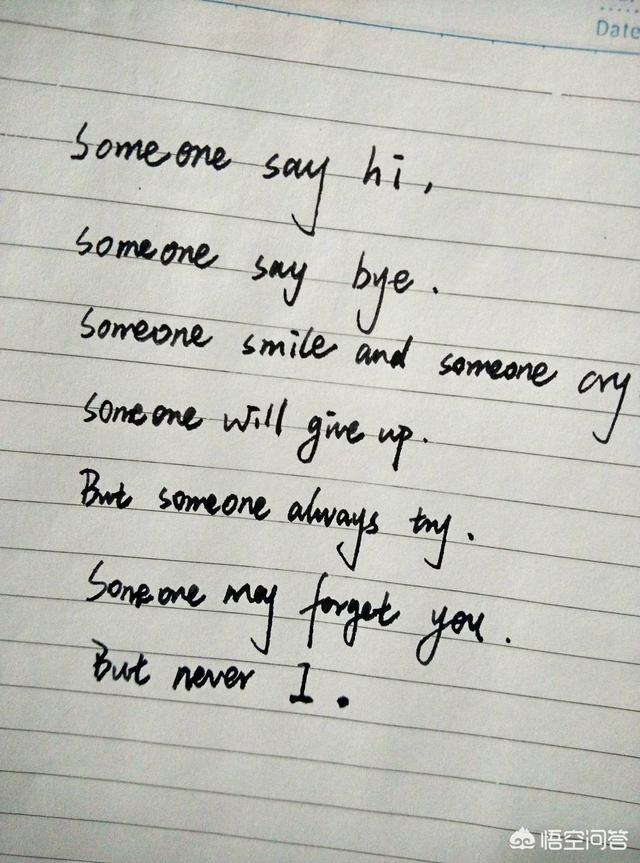 Date
Someone say hi,
someone say bye.
Someone smile and someone cry
someone will give up.
But someone always try.
Someone may forget you.
But never I.
悟空问答